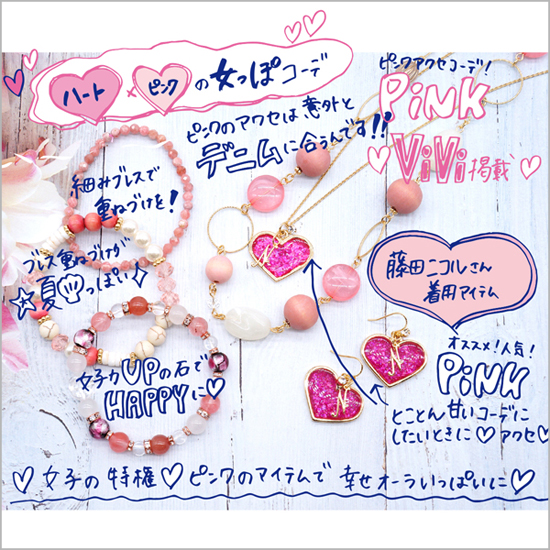 ハート×ピンクの女っぽコーデ
ピンクのアクセは意外と
デニムに合うんです!!
ピンクアクセコーデ!
PiNK
ViVi掲載
細みブレスで
重ねづけを!
ブレス重ねづけが
夏っぽい
藤田ニコルさん
着用アイテム
女子力UPの石で
HAPPYに
オススメ!人気!
PiNK
とことん甘いコーデに
したいときに♡アクセ♡
♡女子の特権♡ピンクのアイテムで 幸せオーラいっぱいに♡
N
N
N